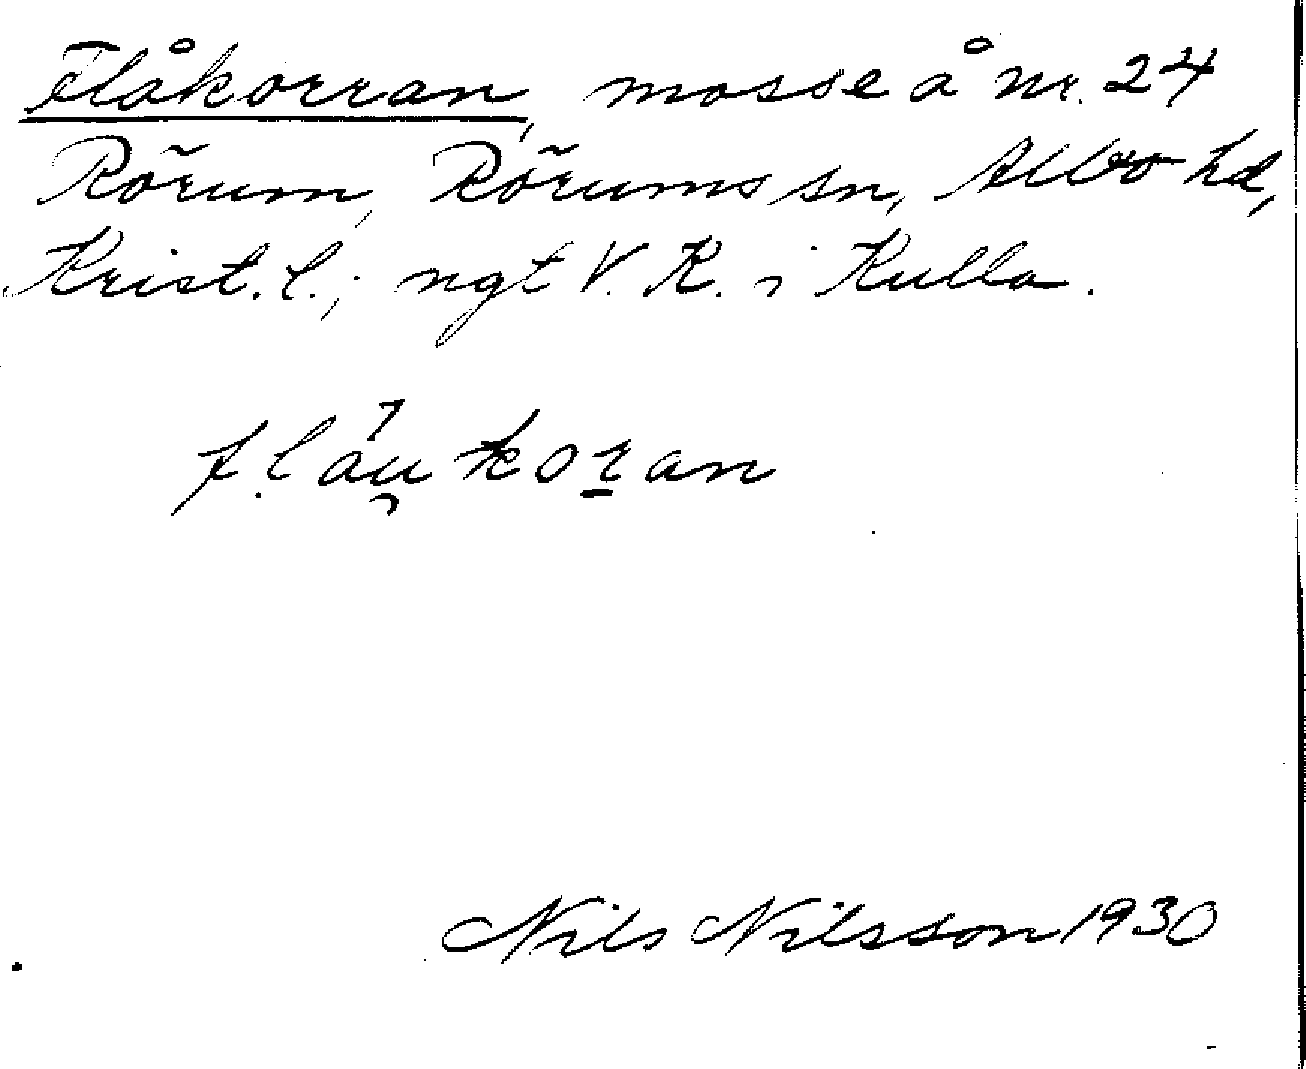 Flåkorran, mosse å nr. 24
Rörum, Rörums sn, Albo hd,
Krist. l.; ngt V. K. i Kulla.
flau̯koran
Nils Nilsson 1930